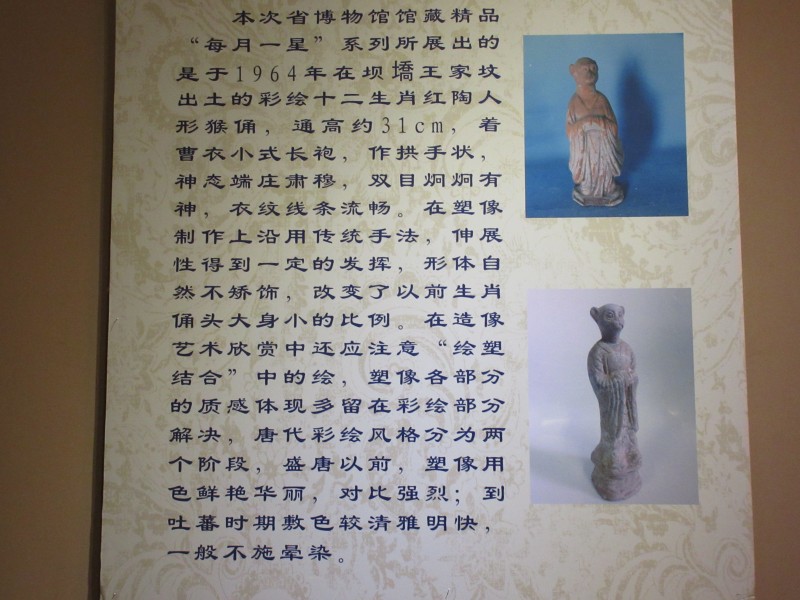 本次省博物馆馆藏精品
“每月一星”系列所展出的
是于1964年在坝墧王家坟
出土的彩绘十二生肖红陶人
形猴俑，通高约31cm，着
曹衣小式长袍，作拱手状，
神态端庄肃穆，双目炯炯有
神，衣纹线条流畅。在塑像
制作上沿用传统手法，伸展
性得到一定的发挥，形体自
然不矫饰，改变了以前生肖
俑头大身小的比例。在造像
艺术欣赏中还应注意“绘塑
结合”中的绘，塑像各部分
的质感体现多留在彩绘部分
解决，唐代彩绘风格分为两
个阶段，盛唐以前，塑像用
色鲜艳华丽，对比强烈；到
吐蕃时期敷色较清雅明快，
一般不施晕染。